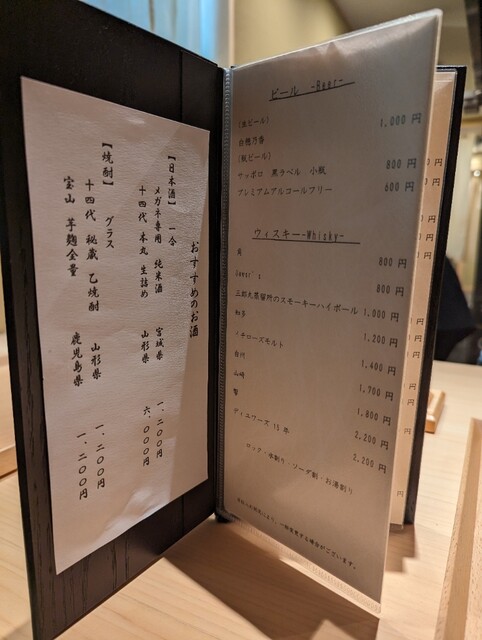 おすすめのお酒
【日本酒】 一合
メガネ専用 純米酒 宮城県 一、二〇〇円
十四代 本丸 生詰め 山形県 六、〇〇〇円
【焼酎】 グラス
十四代 秘蔵 乙焼酎 山形県 一、二〇〇円
宝山 芋麹全量 鹿児島県 一、二〇〇円
ビール -Beer-
(生ビール) 1,000 円
白穂乃香
(瓶ビール) 800 円
サッポロ 黒ラベル 小瓶 600 円
プレミアムアルコールフリー
ウィスキー-Whisky-
角 800 円
800 円
三郎丸蒸留所のスモーキーハイボール 1,000 円
知多 1,200 円
イチローズモルト 1,400 円
白州 1,700 円
山崎 1,800 円
響 2,200 円
デュワーズ 15 年 2,200 円
ロック・水割り・ソーダ割・お湯割り
一部変更する場合がございます。